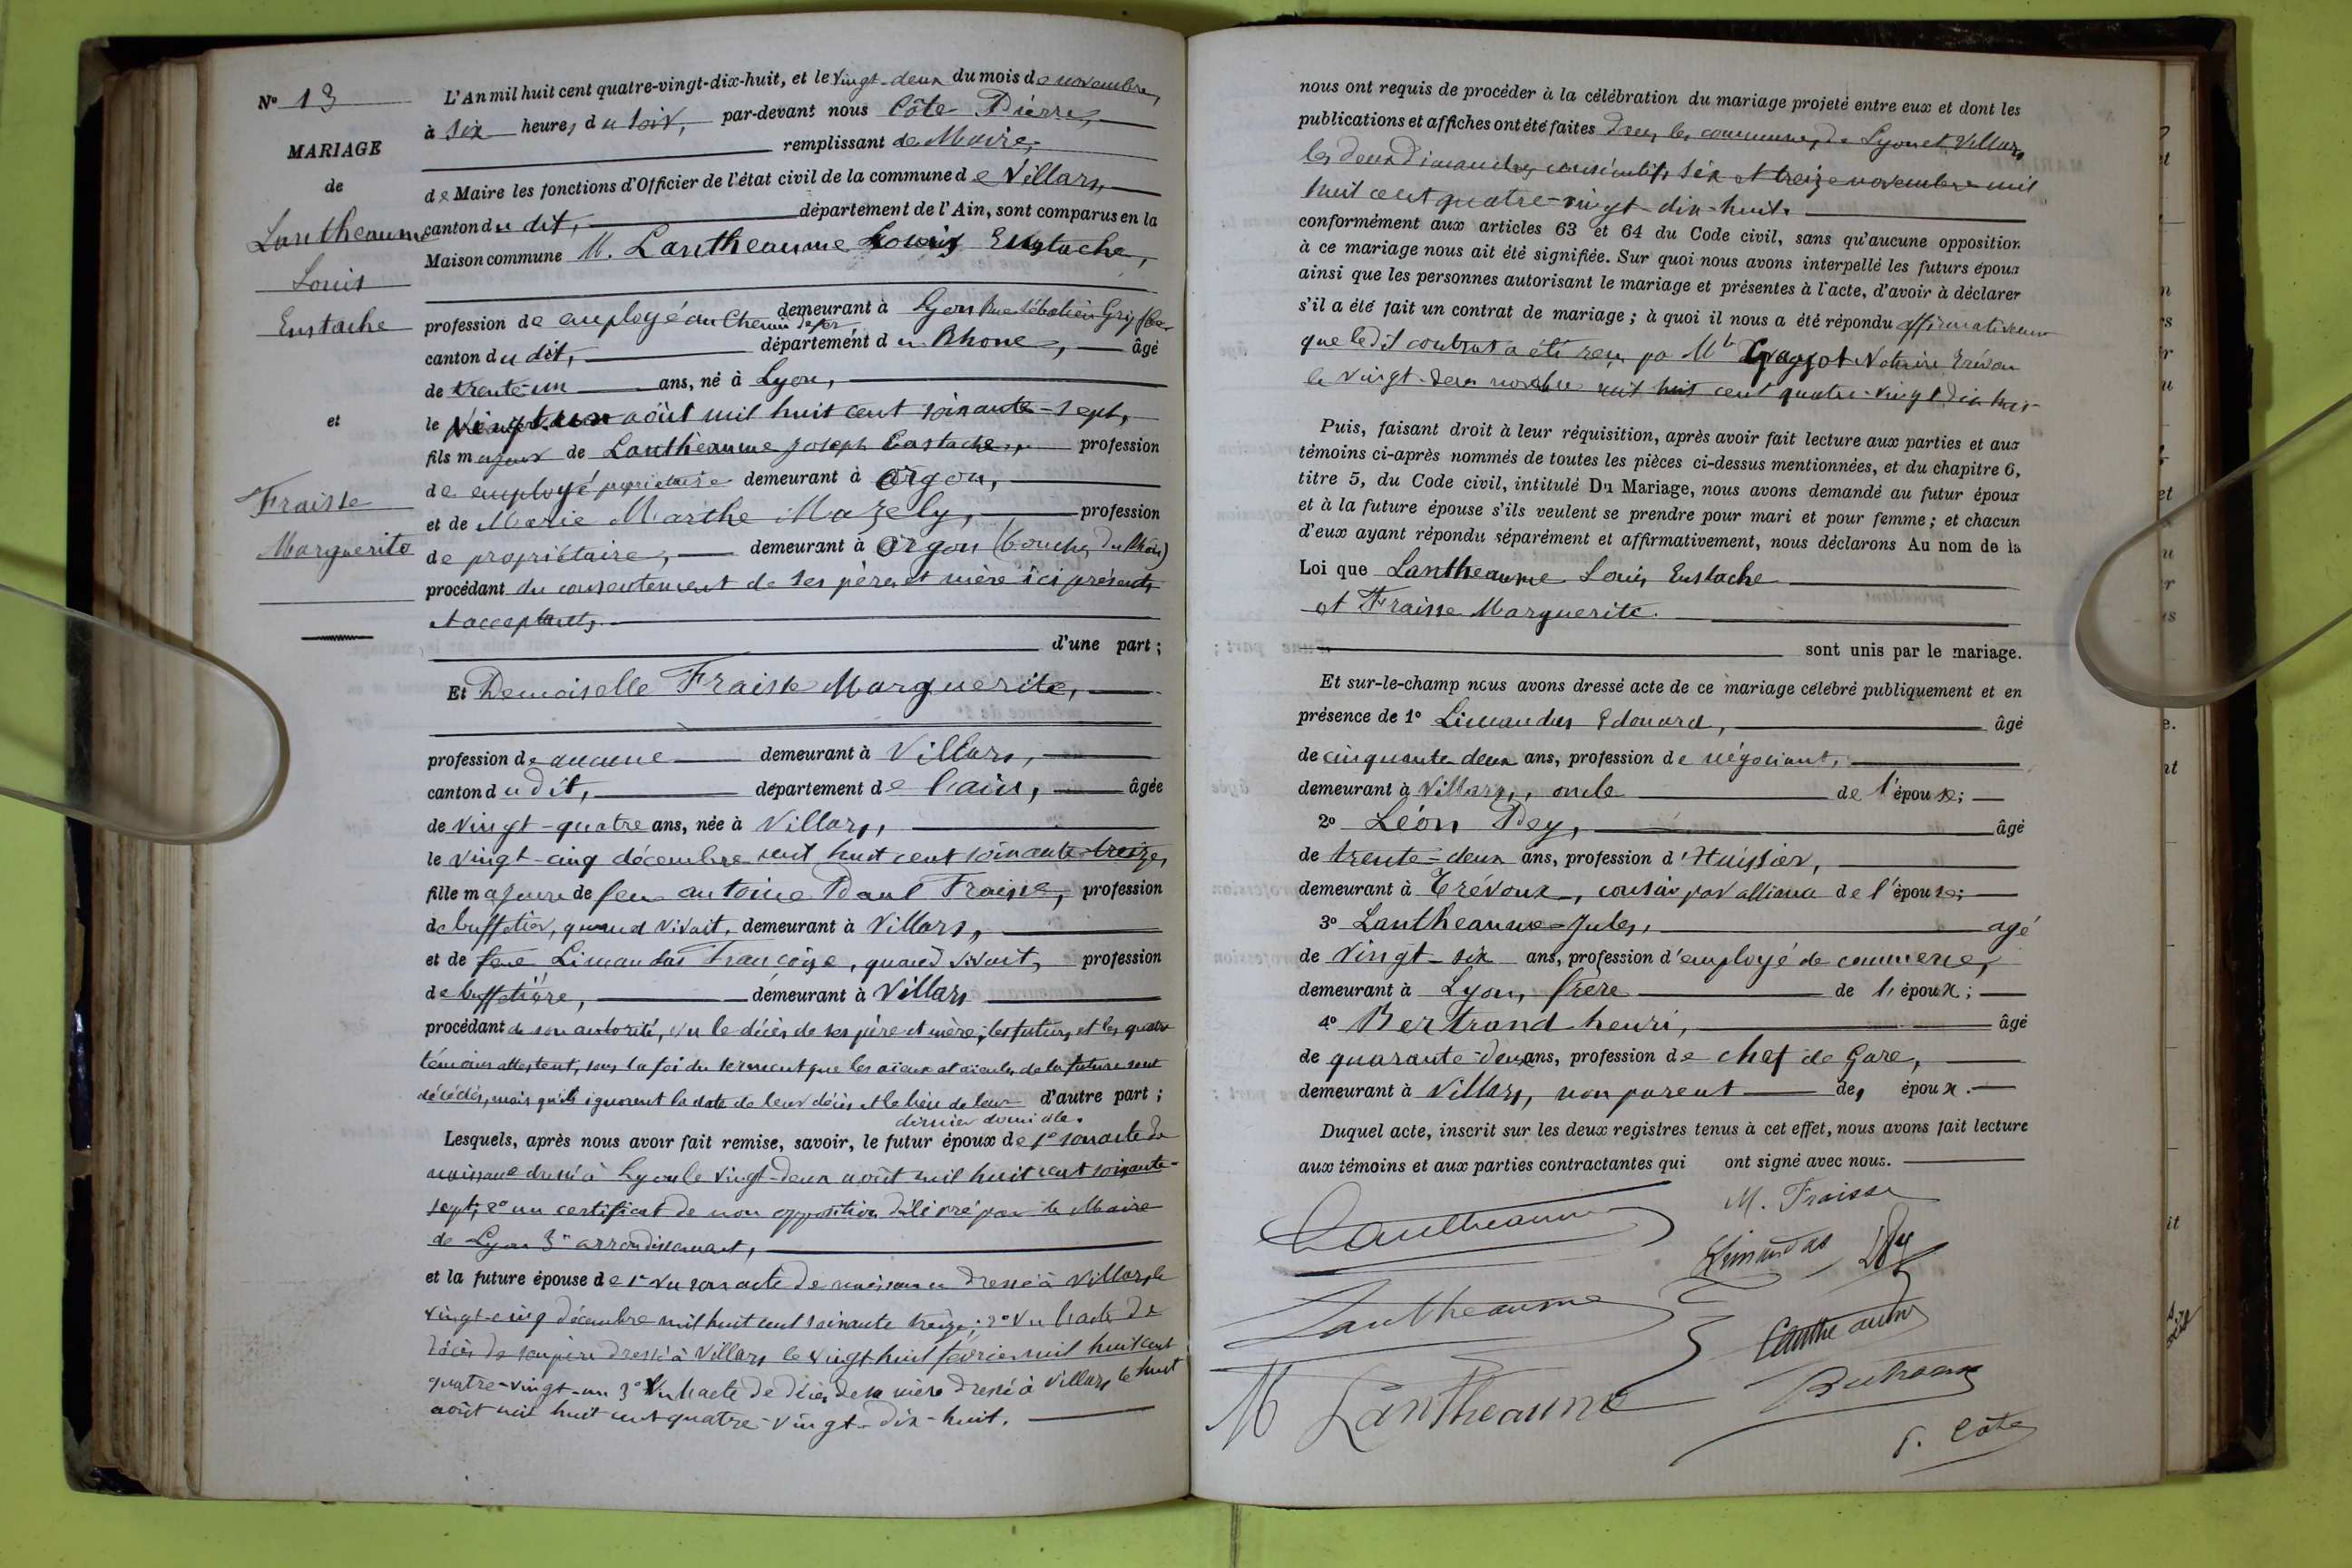 N° 13
MARIAGE
de
Lantheaume
Louis
Eustache
et
Fraisse
Marguerite
L'An mil huit cent quatre-vingt-dix-huit, et le vingt-deux du mois de novembre,
à six heures du soir, par-devant nous Côte Pierre,
remplissant de Maire,
de Maire les fonctions d'Officier de l'état civil de la commune de Villars,
canton du dit, département de l'Ain, sont comparus en la
Maison commune M. Lantheaume Louis Eustache,
profession de employé au Chemin de fer demeurant à Lyon Rue Sébastien Gryphe
canton du dit, département du Rhone, âgé
de trente-un ans, né à Lyon,
le vingt-un août mil huit cent soixante-sept,
fils majeur de Lantheaume Joseph Eustache, profession
de employé propriétaire demeurant à Orgon,
et de Marie Marthe Mazely, profession
de propriétaire, demeurant à Orgon (Bouches du Rhône)
procédant du consentement de ses père et mère ici présents
et acceptants,
d'une part;
Et Demoiselle Fraisse Marguerite,
profession de aucune demeurant à Villars,
canton du dit, département de l'ain, âgée
de vingt-quatre ans, née à Villars,
le vingt-cinq décembre mil huit cent soixante-treize,
fille majeure de feu antoine Paul Fraisse, profession
de buffetier, quand vivait, demeurant à Villars,
et de feue Limandas Françoise, quand vivait, profession
de buffetière, demeurant à Villars
procédant de son autorité, vu le décès de ses père et mère; les futurs et les quatre
témoins attestent, sous la foi du serment que les aïeux et aïeules de la future sont
décédés, mais qu'ils ignorent la date de leur décès et le lieu de leur d'autre part;
dernier domicile.
Lesquels, après nous avoir fait remise, savoir, le futur époux de 1° son acte de
naissance dressé à Lyon le vingt-deux août mil huit cent soixante-
sept; 2° un certificat de non opposition délivré par le Maire
de Lyon 3e arrondissement,
et la future épouse de 1° Vu son acte de naissance dressé à Villars le
vingt-cinq décembre mil huit cent soixante treize; 2° Vu l'acte de
décès de son père dressé à Villars le vingt huit février mil huit cent
quatre-vingt-un 3° Vu l'acte de décès de sa mère dressé à Villars le huit
août mil huit cent quatre-vingt-dix-huit.
nous ont requis de procéder à la célébration du mariage projeté entre eux et dont les
publications et affiches ont été faites dans les communes de Lyon et Villars
les deux dimanches consécutifs six et treize novembre mil
huit cent quatre-vingt-dix-huit.
conformément aux articles 63 et 64 du Code civil, sans qu'aucune opposition
à ce mariage nous ait été signifiée. Sur quoi nous avons interpellé les futurs époux
ainsi que les personnes autorisant le mariage et présentes à l'acte, d'avoir à déclarer
s'il a été fait un contrat de mariage; à quoi il nous a été répondu affirmativement
que le dit contrat a été reçu par Me Notaire Trévoux
le vingt-deux novembre mil huit cent quatre-vingt dix huit
Puis, faisant droit à leur réquisition, après avoir fait lecture aux parties et aux
témoins ci-après nommés de toutes les pièces ci-dessus mentionnées, et du chapitre 6,
titre 5, du Code civil, intitulé Du Mariage, nous avons demandé au futur époux
et à la future épouse s'ils veulent se prendre pour mari et pour femme; et chacun
d'eux ayant répondu séparément et affirmativement, nous déclarons Au nom de la
Loi que Lantheaume Louis Eustache
et Fraisse Marguerite.
sont unis par le mariage.
Et sur-le-champ nous avons dressé acte de ce mariage célébré publiquement et en
présence de 1° Limandas Edouard, âgé
de cinquante deux ans, profession de négociant,
demeurant à Villars, oncle de l'épouse;
2° Léon Dey, âgé
de trente-deux ans, profession d'Huissier,
demeurant à Trévoux, cousin par alliance de l'épouse;
3° Lantheaume Jules, agé
de vingt-six ans, profession d'employé de commerce,
demeurant à Lyon, frère de l'époux;
4° Bertrand henri, âgé
de quarante-deux ans, profession de chef de Gare,
demeurant à Villars, non parent des époux.
Duquel acte, inscrit sur les deux registres tenus à cet effet, nous avons fait lecture
aux témoins et aux parties contractantes qui ont signé avec nous.
Lantheaume
M. Fraisse
Limandas Dey
Lantheaume
Lantheaume
M Lantheaume
Bertrand
P. Côte